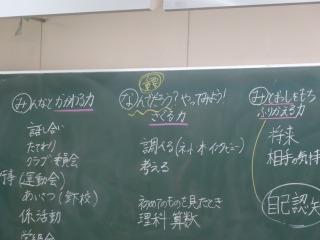 みんなとかかわる力
話し合い
たてわり
クラブ 委員会
(運動会)
あいさつ
係活動
なんでだろう？やってみよう！
さぐる力
調べる(ネット 本 インタビュー)
考える
初めてのものを見たとき
理科 算数
みとおしをもち
ふりかえる力
将来
相手の気持
自己認知